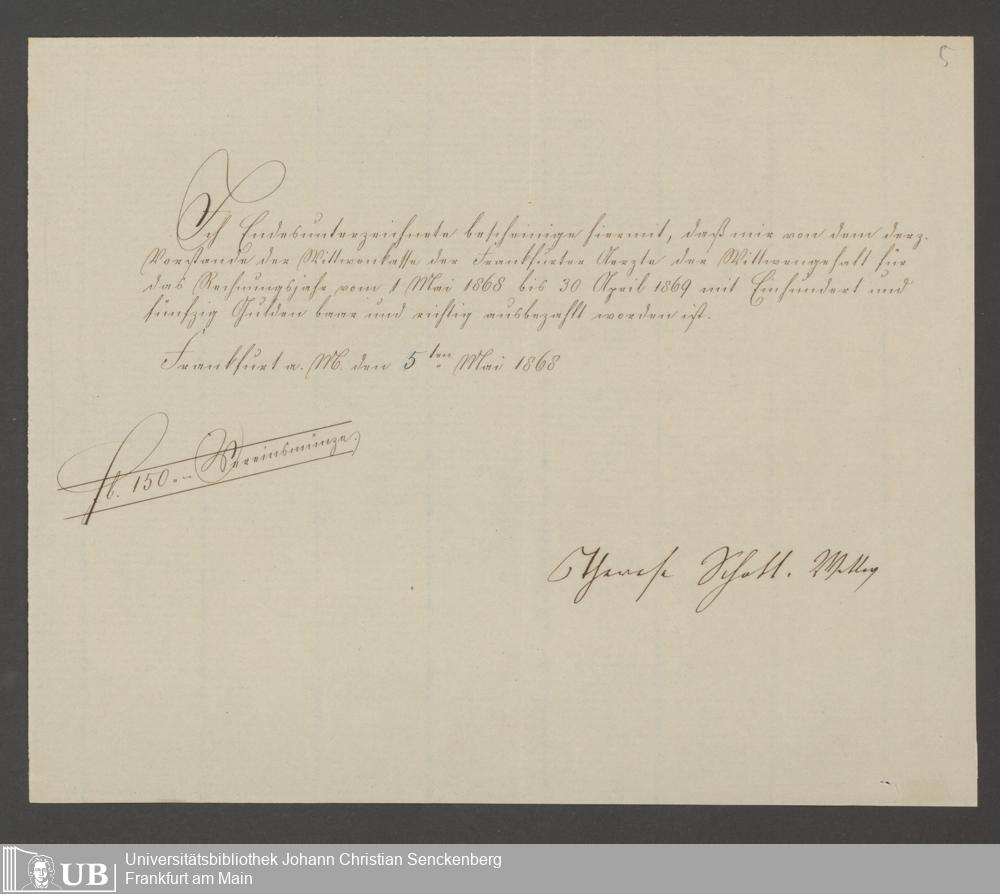 5
Ich Endesunterzeichnete bescheinige hiermit, daß mir von dem derz.
Vorstande der Wittwenkasse der Frankfurter Aerzte der Wittwengehalt für
das Rechnungsjahr vom 1 Mai 1868 bis 30 April 1869 mit Einhundert und
fünfzig Gulden baar und richtig ausbezahlt worden ist.
Frankfurt a. M. den 5ten Mai 1868
fl. 150.- Vereinsmünze.
Therese Schott.
UB
Universitätsbibliothek Johann Christian Senckenberg
Frankfurt am Main